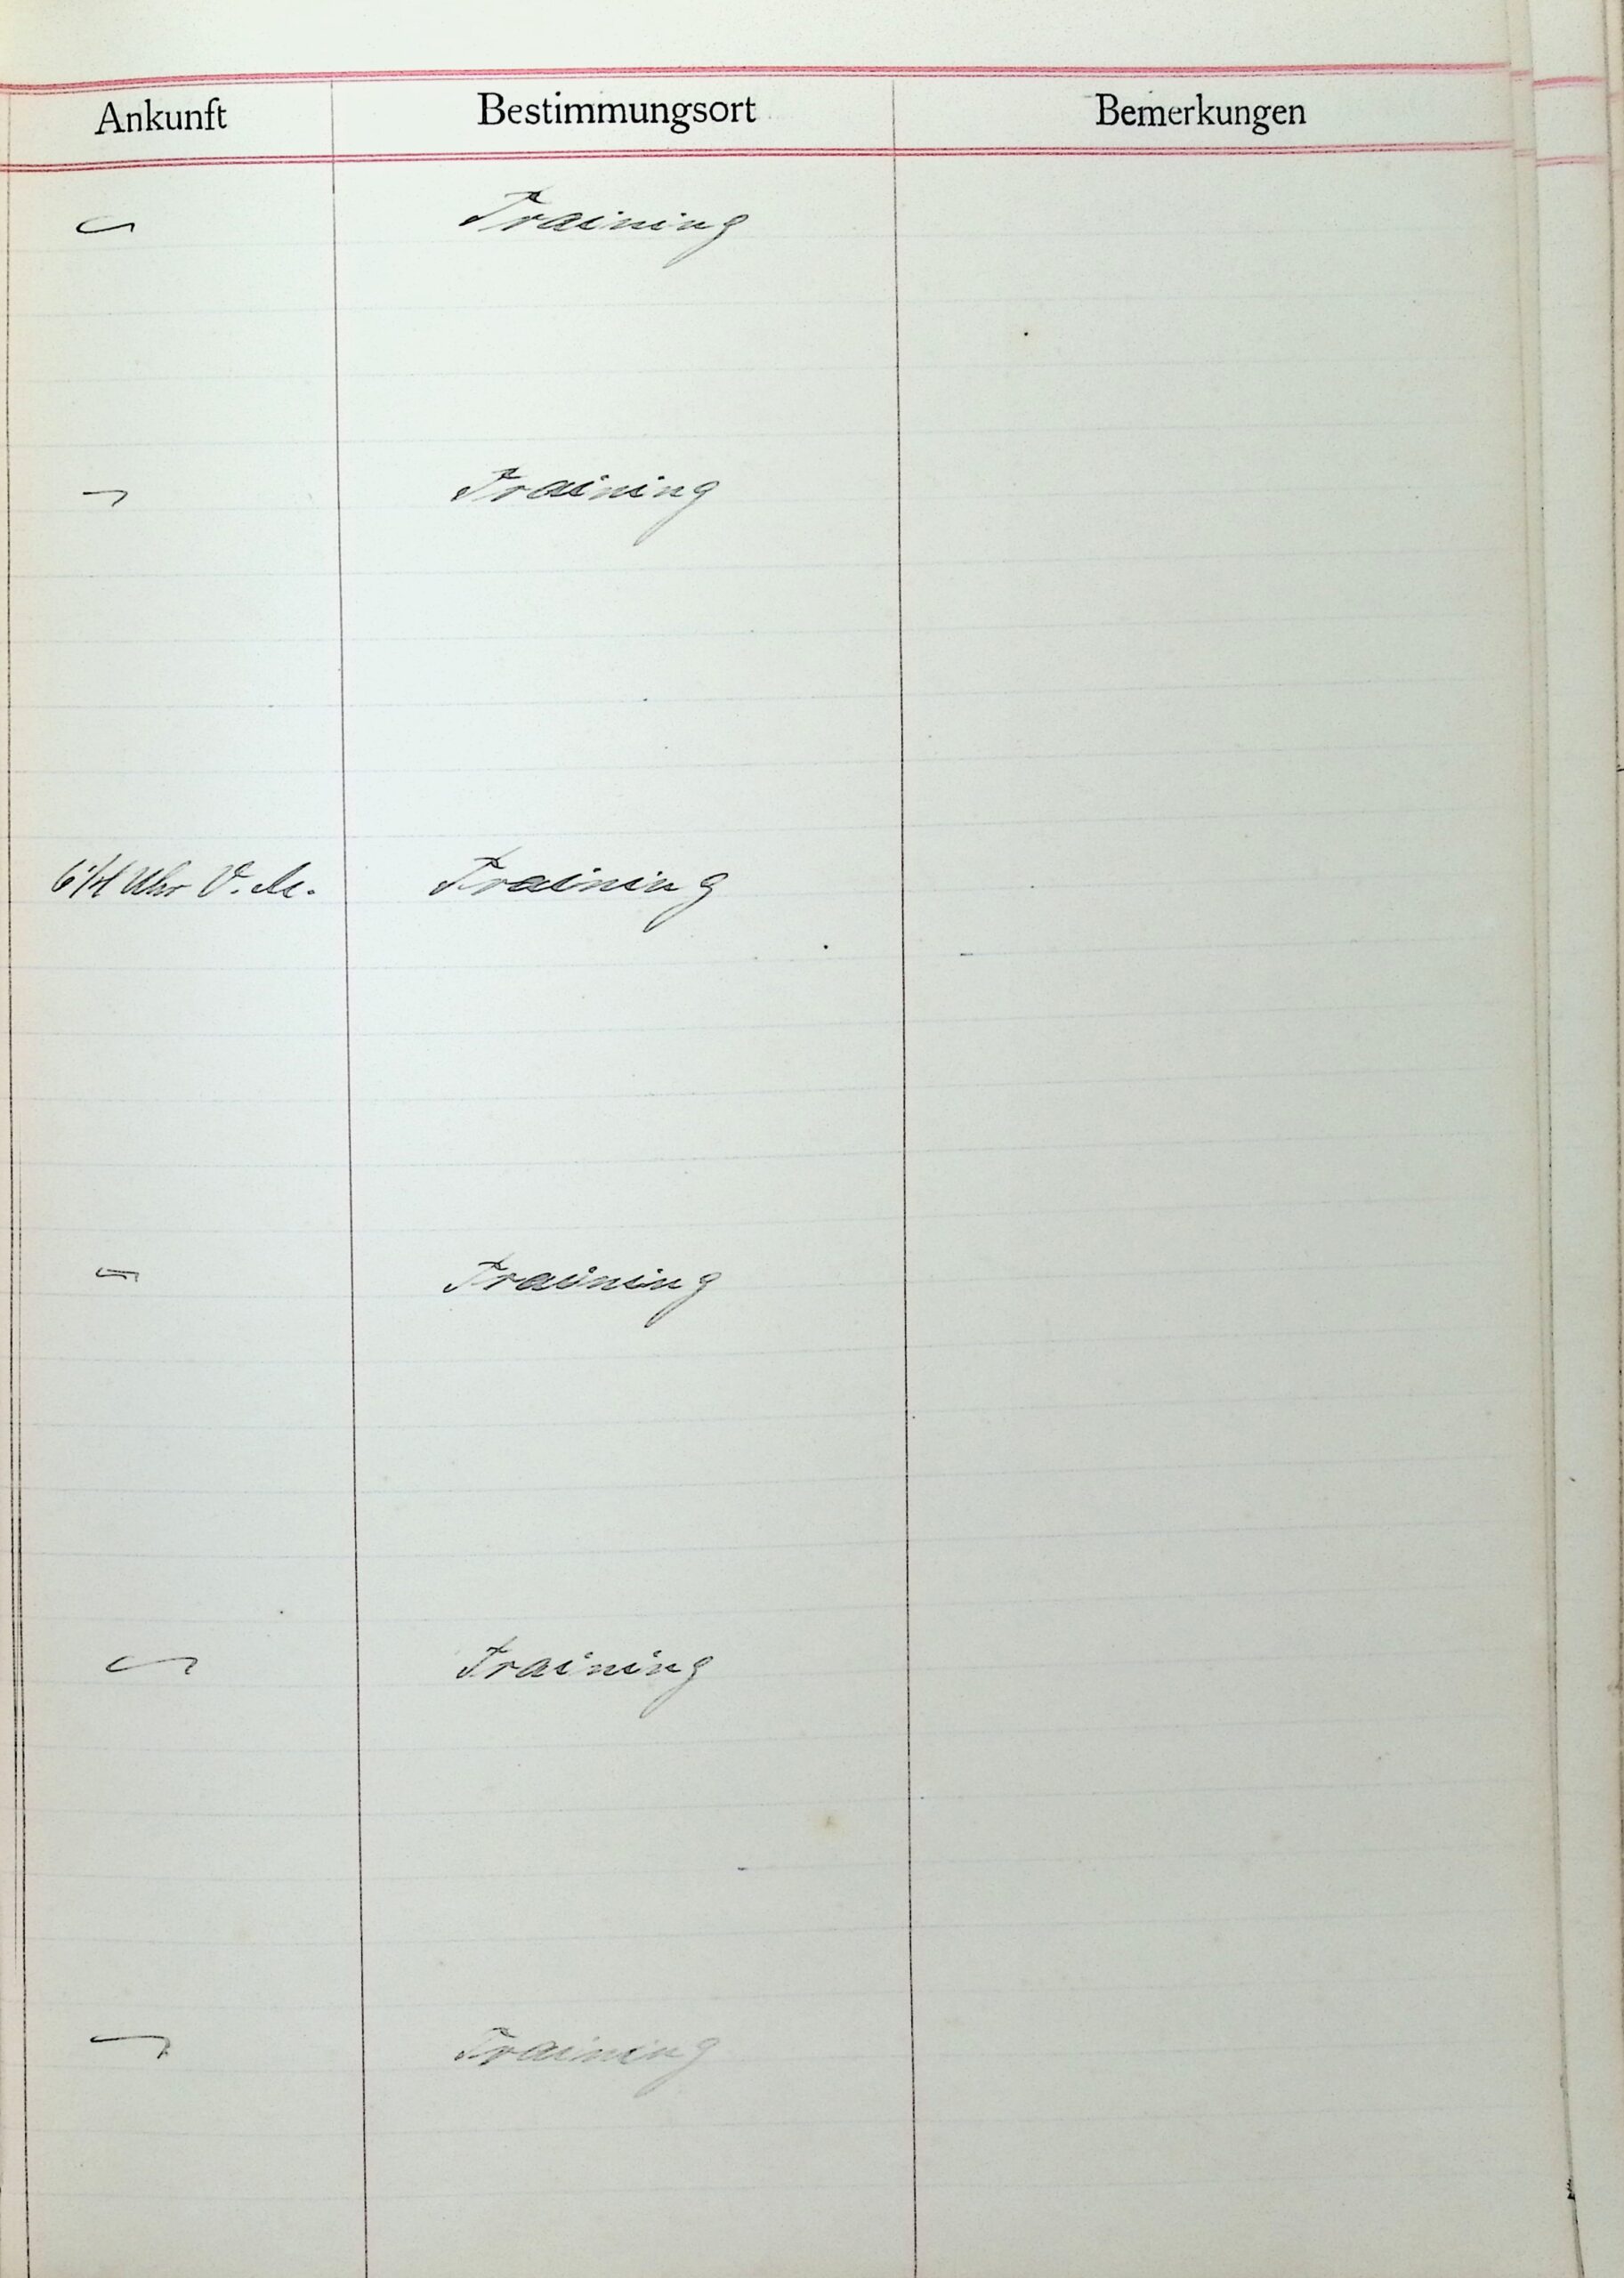 Ankunft Bestimmungsort Bemerkungen
Training
Training
6 1/4 Uhr V. M. Training
Training
Training
Training